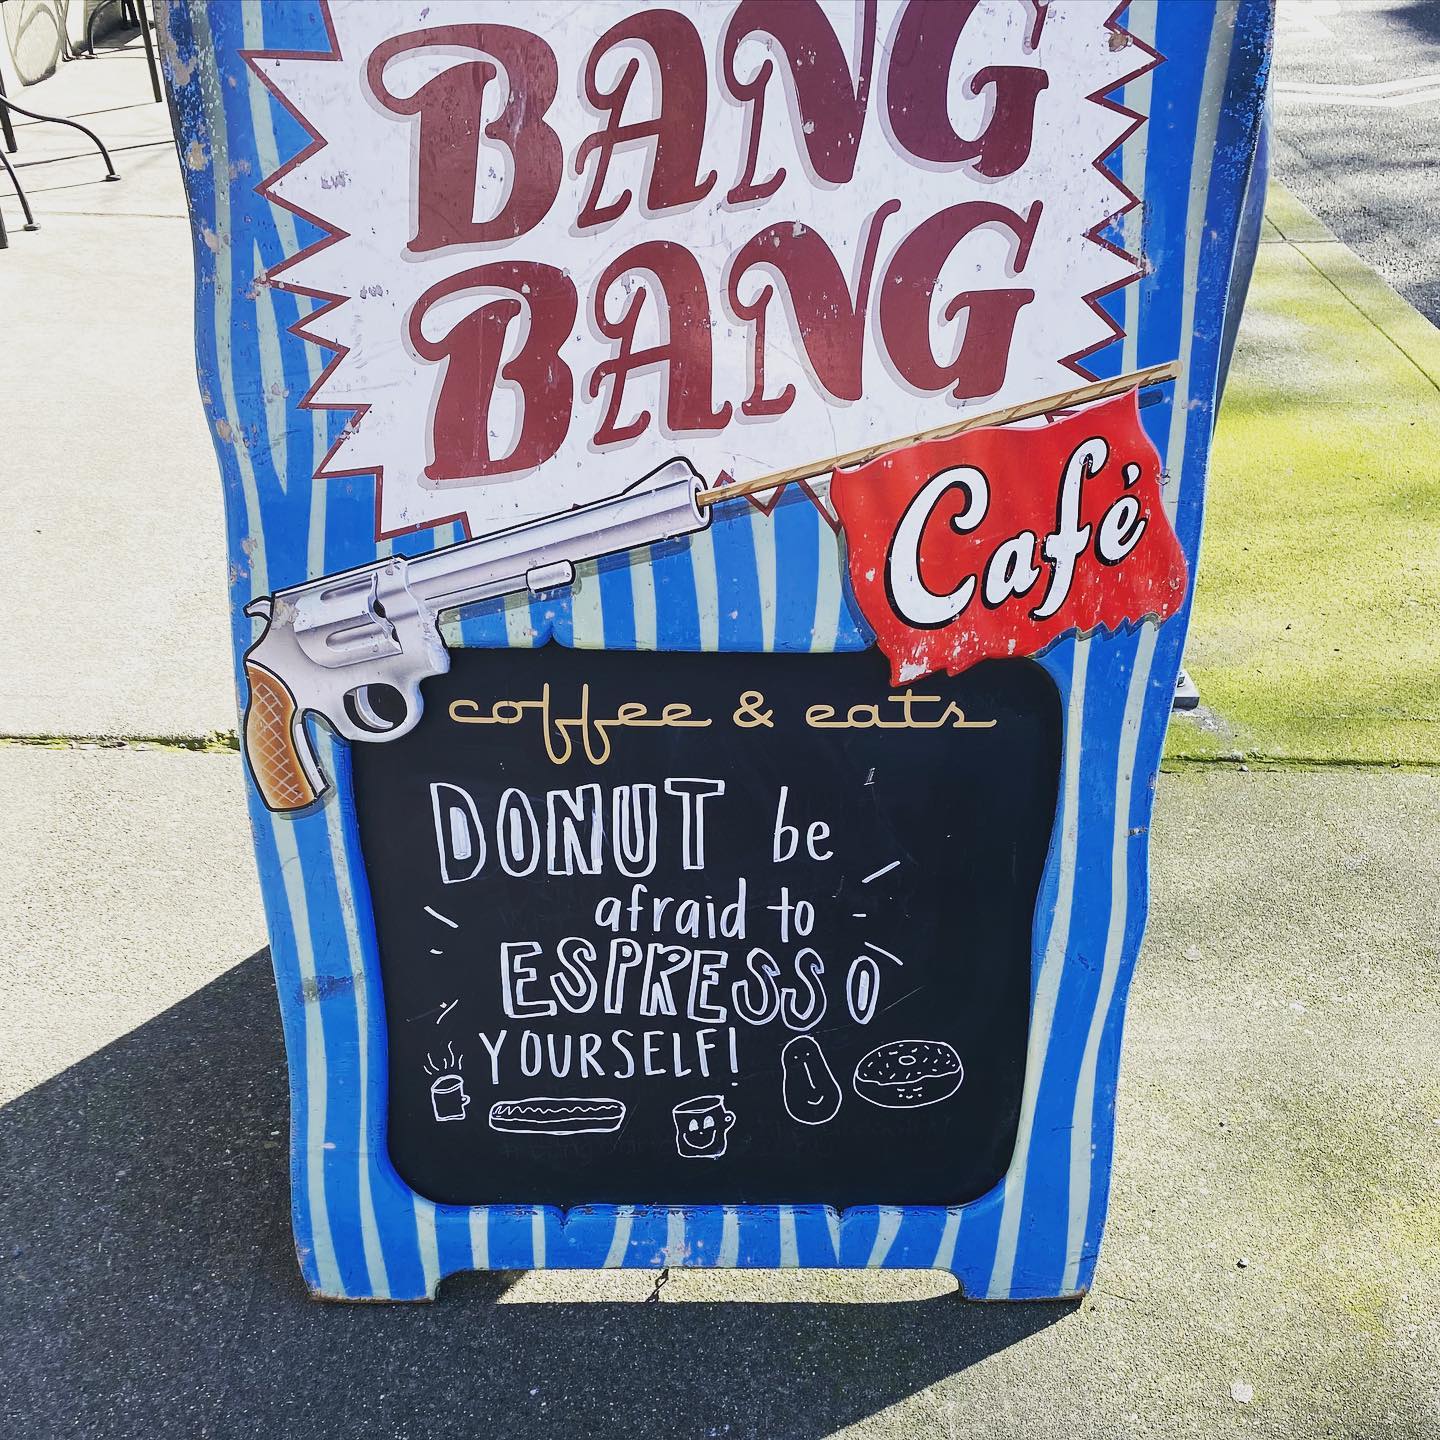 BANG
BANG
Café
coffee & eats
DONUT be
afraid to
ESPRESSO
YOURSELF!